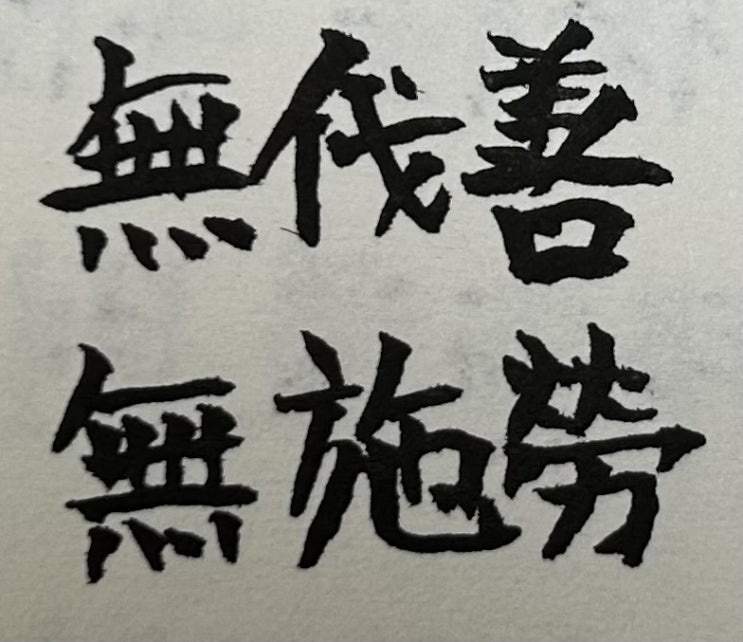 無伐善
無施勞